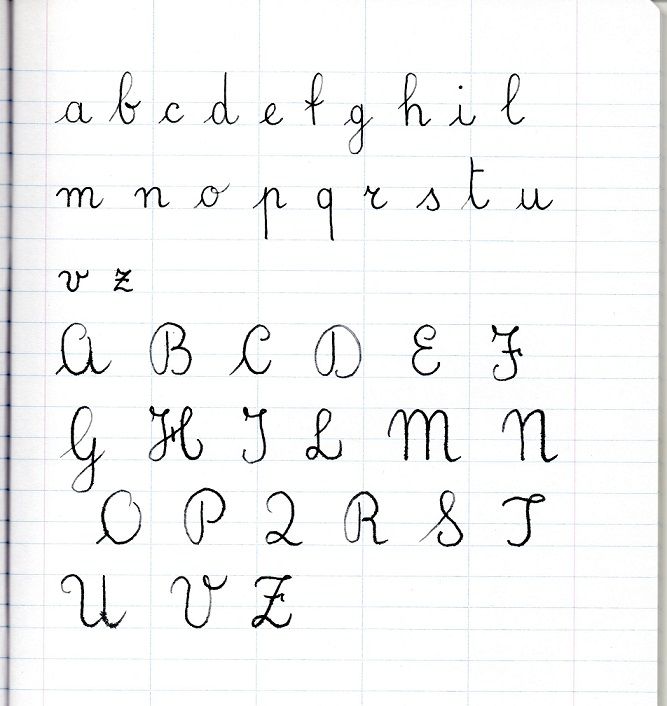 a b c d e f g h i l
m n o p q r s t u
v z
A B C D E F
G H I L M N
O P Q R S T
U V Z